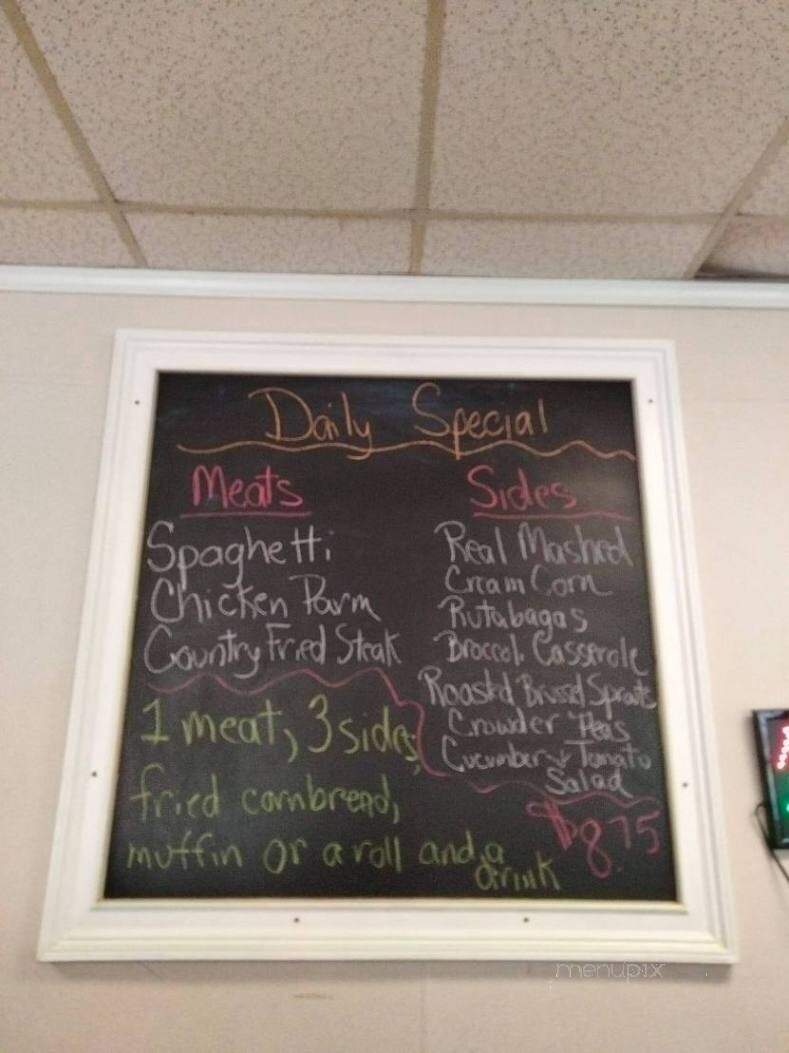 Daily Special
Meats
Spaghetti
Chicken Parm
Country Fried Steak
Sides
Real Mashed
Cream Corn
Rutabagas
Broccoli Casserole
Roasted Brussel Sprouts
Crowder Peas
Cucumber & Tomato
Salad
1 meat, 3 sides,
fried cornbread,
muffin or a roll and a
drink
$8.75
menupix